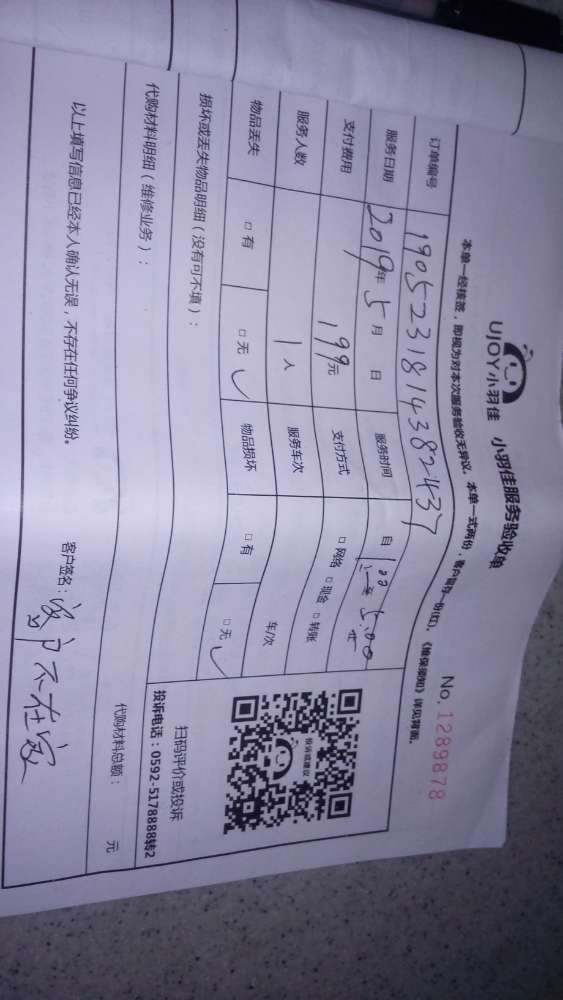 UJOY小羽佳 小羽佳服务验收单
No. 1289878
本单一经核签，即视为对本次服务验收无异议。本单一式两份，客户留存一份(红)，《维保须知》详见背面。
订单编号 1905231814382437
服务日期 2019年 5月 日 服务时间 自 1:00 至 5:00
支付费用 199元 支付方式 □ 网络 □ 现金 □ 转账
服务人数 1 人 服务车次 车/次
物品丢失 □ 有 □ 无 ✓ 物品损坏 □ 有 □ 无 ✓
损坏或丢失物品明细（没有可不填）：
投诉或建议
扫码评价或投诉
投诉电话：0592-5178888转2
代购材料明细（维修业务）： 代购材料总额： 元
以上填写信息已经本人确认无误，不存在任何争议纠纷。 客户签名：客户不在家